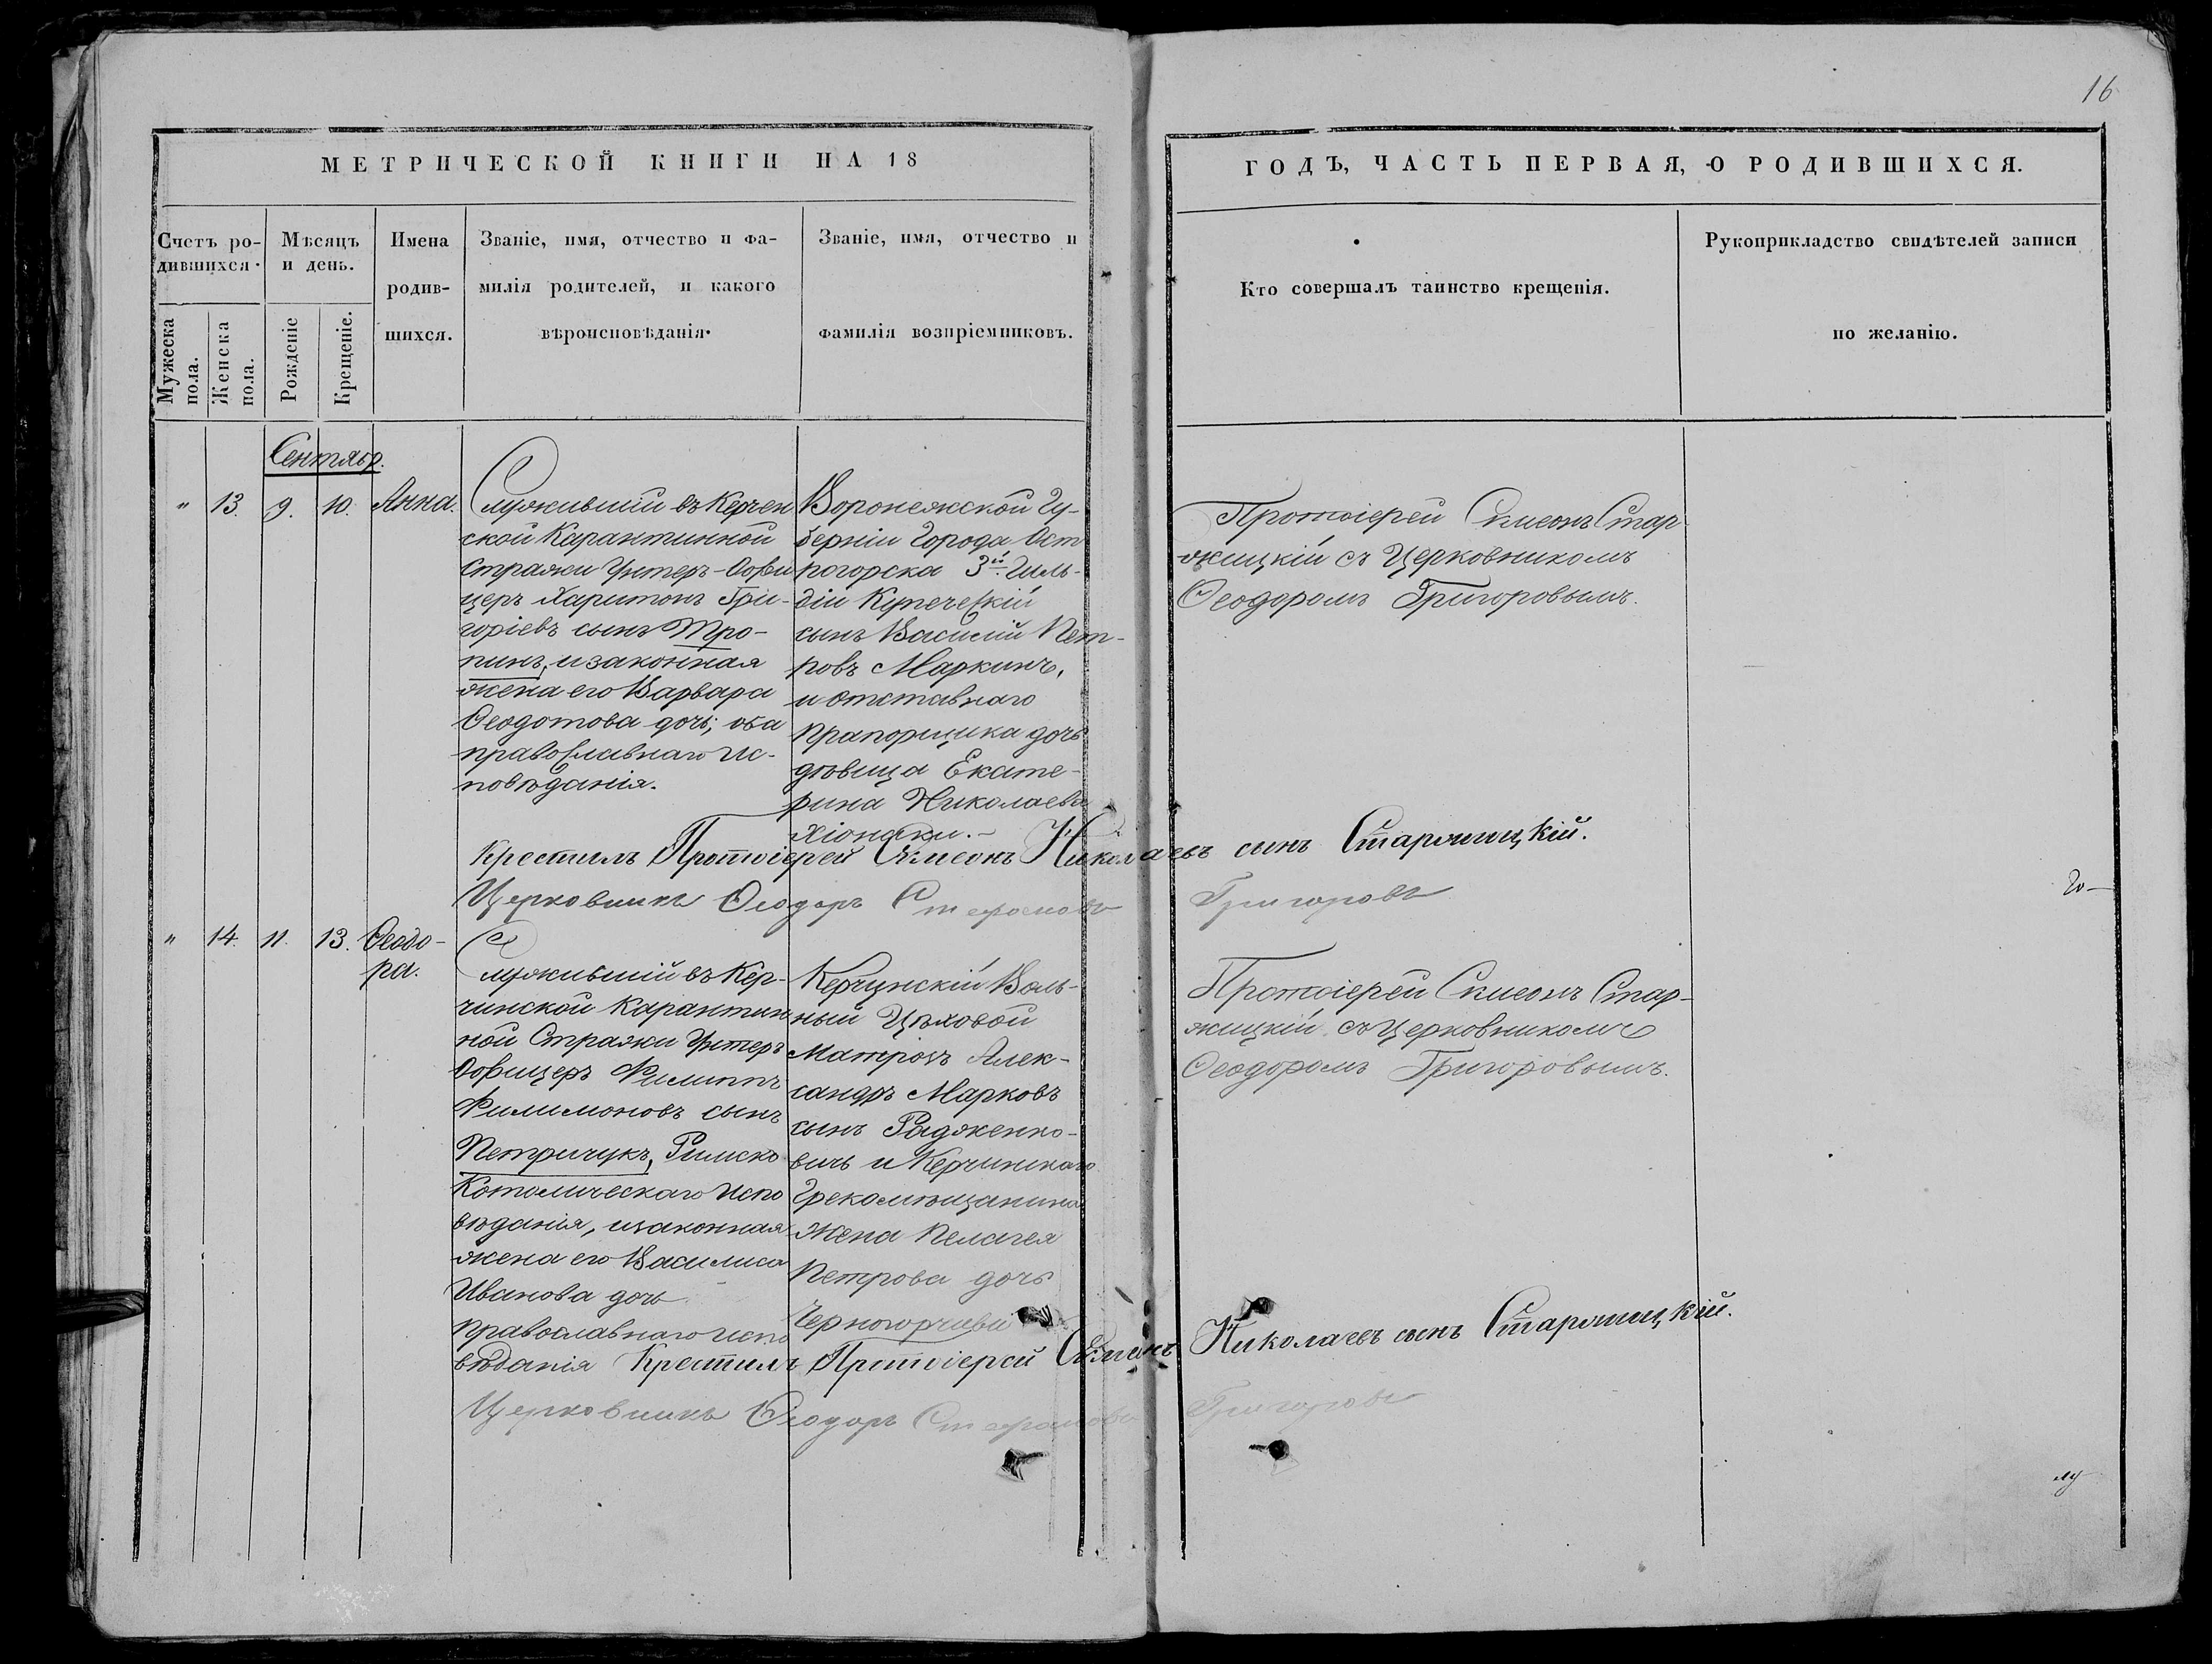 16
МЕТРИЧЕСКОЙ КНИГИ НА 18
ГОДЪ, ЧАСТЬ ПЕРВАЯ, О РОДИВШИХСЯ.
Счетъ ро-
дившихся.
Мужеска
пола.
Женска
пола.
Мѣсяцъ
и день.
Рожденіе
Крещеніе.
Имена
родив-
шихся.
Званіе, имя, отчество и фа-
милія родителей, и какого
вѣроисповѣданія.
Званіе, имя, отчество и
фамилія воспріемниковъ.
Кто совершалъ таинство крещенія.
Рукоприкладство свидѣтелей записи
по желанію.
Сентябр.
" 13. 9. 10. Анна.
Служившій въ Керчен
ской Карантинной
Стражи Унтеръ-Оофи
церъ Харитонъ Гри-
горіевъ сынъ Тро-
пинъ, и законная
жена его Варвара
Ѳеодотова дочь; оба
православнаго Ис-
повѣданія.
Воронежской Гу-
берніи Города Ост
рогорска 3й Гиль-
діи Купеческій
сынъ Василій Пет-
ровъ Маркинъ,
и отставнаго
прапорщика дочь
дѣвица Екате-
рина Николаева
Хіонаки.-
Протоіерей Симеонъ Стар
жицкій съ Церковникомъ
Ѳеодоромъ Григоровымъ.
Крестилъ Протоіерей Симеонъ Николаевъ сынъ Старжицкій.
Церковникъ Ѳеодоръ Стефановъ Григоровъ
го-
" 14. 11. 13. Ѳеодо-
ра.
Служившій въ Кер-
чинской Карантин
ной Стражи Унтеръ
Оофицеръ Филиппъ
Филимоновъ сынъ
Петричукъ, Римско
Католическаго Испо
вѣданія, и законная
жена его Василиса
Иванова дочь
православнаго испо
вѣданія
Керчинскій Воль-
ный Цѣховой
Матросъ Алек-
сандръ Марковъ
сынъ Раджено-
вичь и Керчинскаго
Грекомѣщанина
Жена Пелагея
Петрова дочь
Протоіерей Симеонъ Стар-
жицкій съ Церковникомъ
Ѳеодоромъ Григоровымъ.
Крестилъ Протоіерей Симеонъ Николаевъ сынъ Старжицкій.
Церковникъ Ѳеодоръ Стефановъ Григоровъ
лу